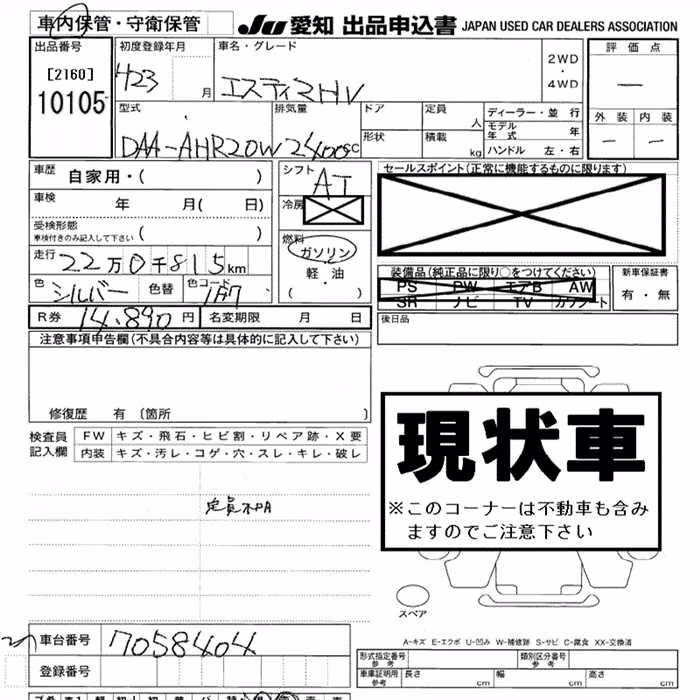 車内保管・守衛保管 JU 愛知 出品申込書 JAPAN USED CAR DEALERS ASSOCIATION
出品番号 初度登録年月 車名・グレード 2WD・4WD 評価点
[2160] 423 月 エスティマHV —
10105 型式 排気量 ドア 定員 人 ディーラー・並行 外装 内装
DAA-AHR20W 2400cc 形状 積載 kg モデル年式 年 — —
ハンドル 左・右
車歴 自家用・( ) シフト AT セールスポイント(正常に機能するものに限ります)
車検 年 月( 日) 冷房
受検形態 車検付きのみ記入して下さい ( )
走行 22万0千815km 燃料 ガソリン 軽油 ( ・ )
装備品(純正品に限り○をつけてください) 新車保証書
PS PW エアB AW 有・無
SR ナビ TV カワシート
色 シルバー 色替 色コード 1F7
R券 14.890 円 名変期限 月 日 後日品
注意事項申告欄(不具合内容等は具体的に記入して下さい)
修復歴 有 〔箇所 〕
現状車
※このコーナーは不動車も含みますのでご注意下さい
検査員記入欄 FW キズ・飛石・ヒビ割・リペア跡・X要
内装 キズ・汚レ・コゲ・穴・スレ・キレ・破レ
スペア
A-キズ E-エクボ U-凹み W-補修跡 S-サビ C-腐食 XX-交換済
車台番号 7058404
登録番号
形式指定番号 参考 類別区分番号 参考
車庫証明用 参考 長さ cm 幅 cm 高さ cm